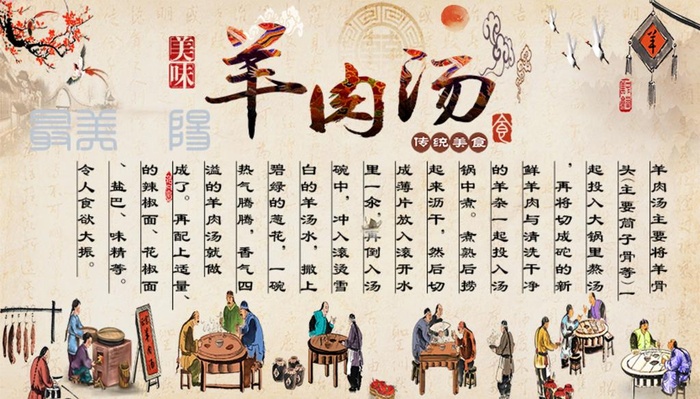 美味
羊肉汤
传统美食
食
羊
最美 阳
羊肉汤主要将羊骨
头(主要筒子骨等)一
起投入大锅里熬汤
，再将切成砣的新
鲜羊肉与清洗干净
的羊杂一起投入汤
锅中煮。煮熟后捞
起来沥干，然后切
成薄片放入滚开水
里一余，再倒入汤
碗中，冲入滚烫雪
白的羊汤水，撒上
碧绿的葱花，一碗
热气腾腾，香气四
溢的羊肉汤就做
成了。再配上适量、
的辣椒面、花椒面
、盐巴、味精等。
令人食欲大振。